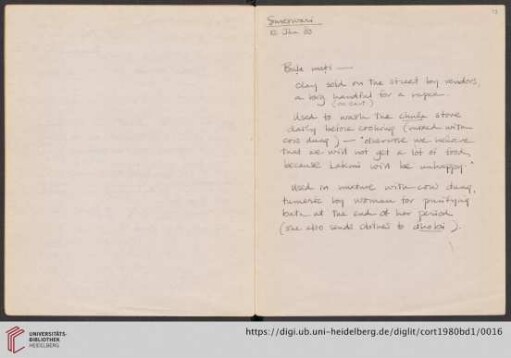 Sureswari
10 Jan 80
Bala mati —
clay sold on the street by vendors,
a big handful for a rupee.
Used to wash the chula stove
daily before cooking (mixed with
cow dung) — "otherwise we believe
that we will not get a lot of food,
because Laksmi will be unhappy."
Used in mixture with cow dung,
tumeric by woman for purifying
bath at the end of her period
(one also sends clothes to dhobi).
UNIVERSITÄTS-
BIBLIOTHEK
HEIDELBERG
https://digi.ub.uni-heidelberg.de/diglit/cort1980bd1/0016